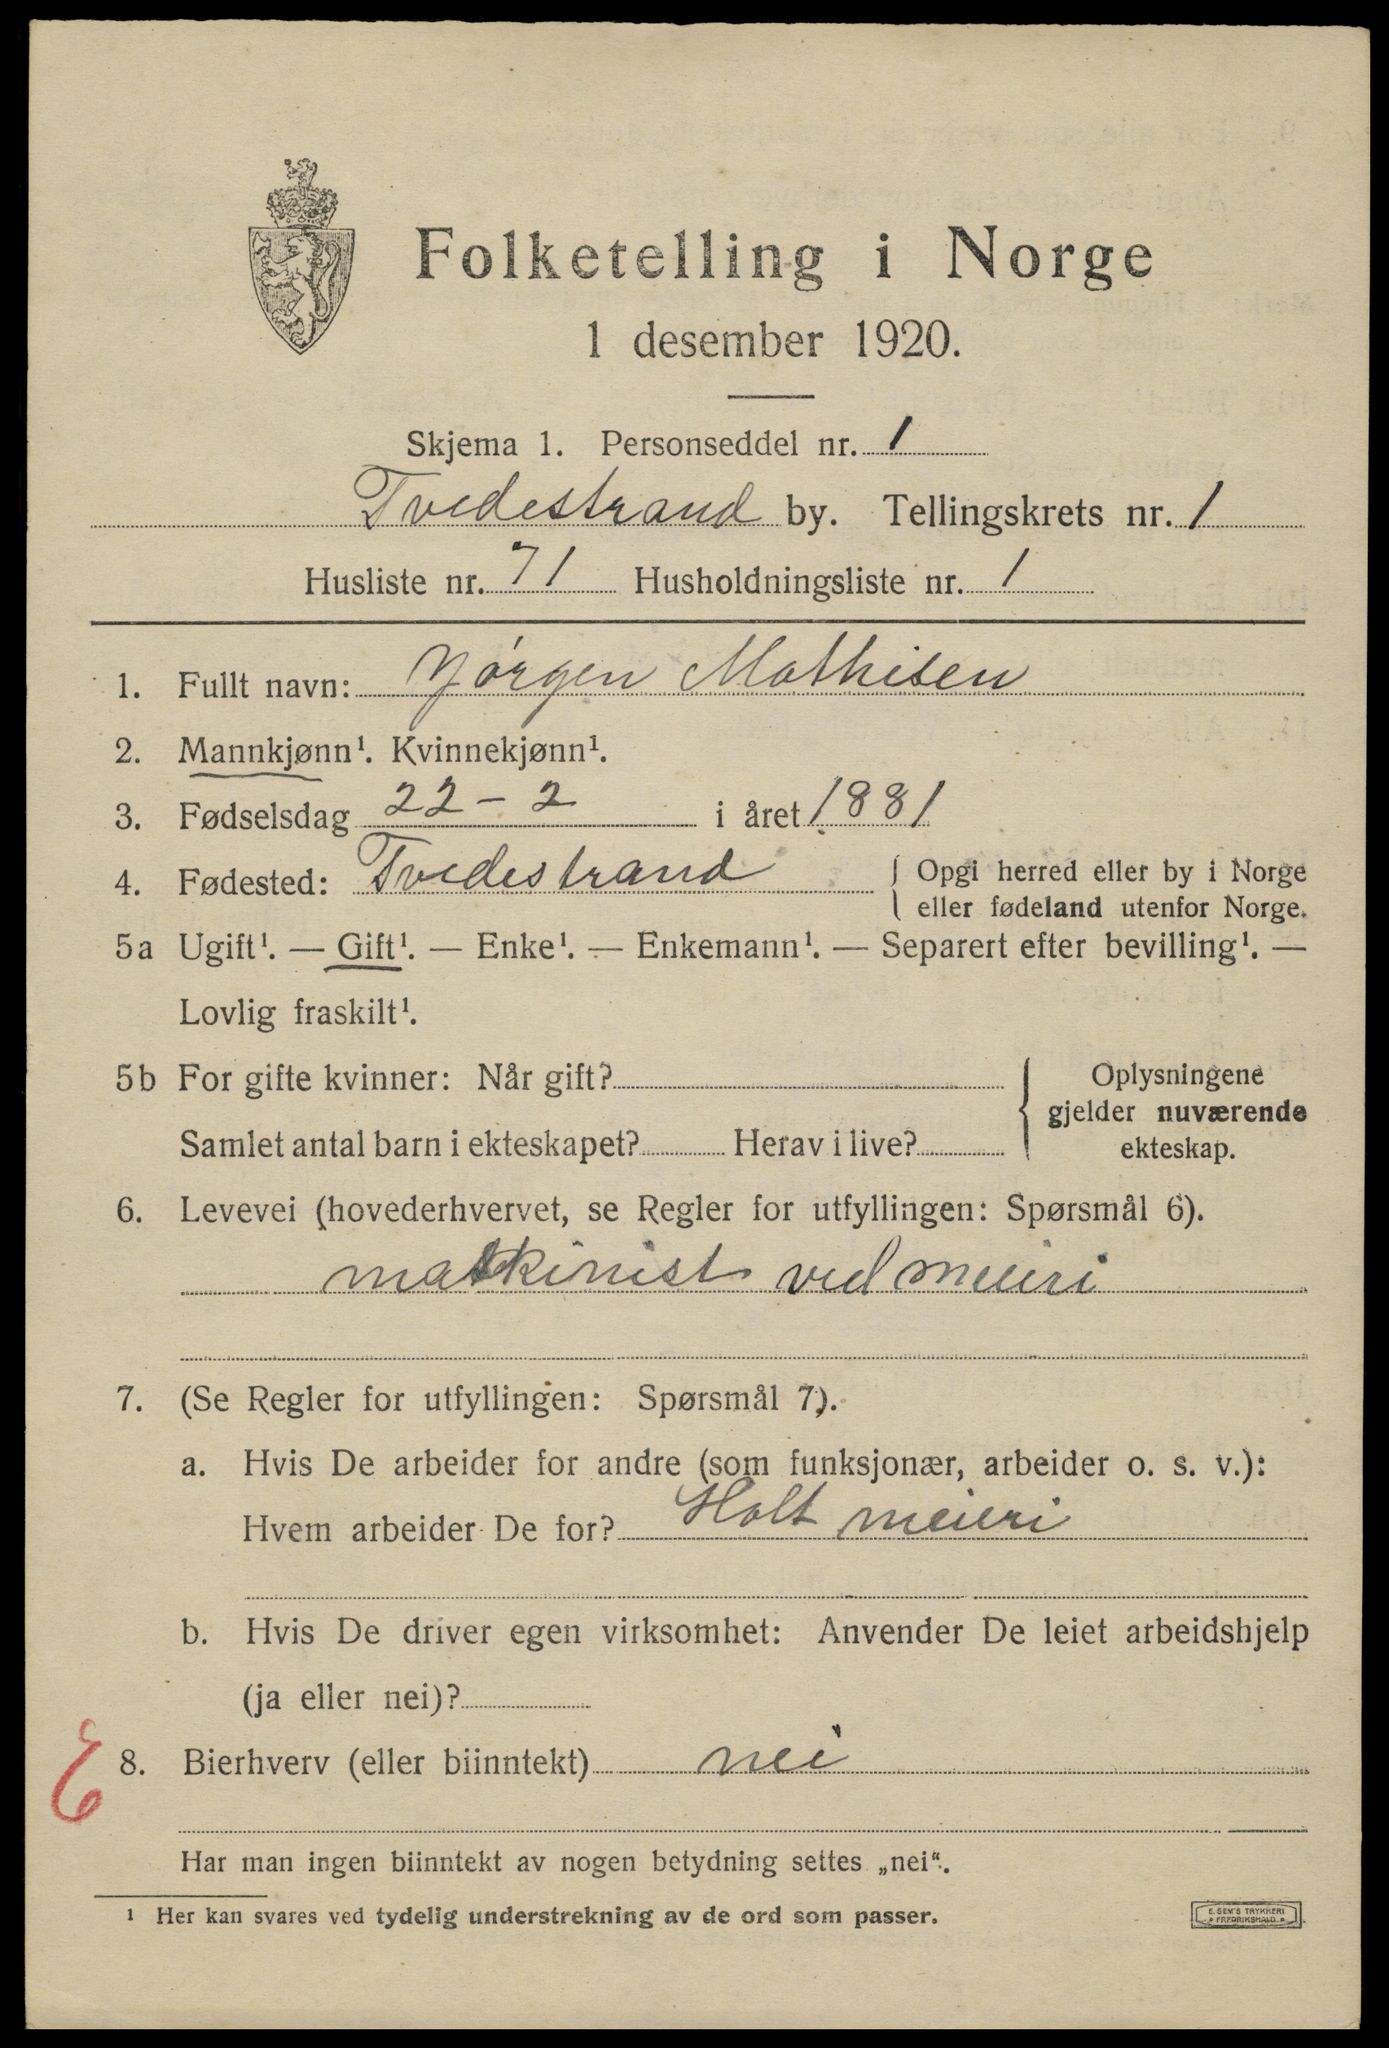 Folketelling i Norge
1 desember 1920.
Skjema 1. Personseddel nr. 1
Tvedestrand by. Tellingskrets nr. 1
Husliste nr. 71 Husholdningsliste nr. 1
1. Fullt navn: Jörgen Mathisen
2. Mannkjønn¹. Kvinnekjønn¹.
3. Fødselsdag 22 - 2 i året 1881
4. Fødested: Tvedestrand { Opgi herred eller by i Norge
eller fødeland utenfor Norge.
5a Ugift¹. — Gift¹. — Enke¹. — Enkemann¹. — Separert efter bevilling¹. —
Lovlig fraskilt¹.
5b For gifte kvinner: Når gift? { Oplysningene
gjelder nuværende
Samlet antal barn i ekteskapet? Herav i live? ekteskap.
6. Levevei (hovederhvervet, se Regler for utfyllingen: Spørsmål 6).
maskinist ved meieri
7. (Se Regler for utfyllingen: Spørsmål 7).
a. Hvis De arbeider for andre (som funksjonær, arbeider o. s. v.):
Hvem arbeider De for? Holt meieri
b. Hvis De driver egen virksomhet: Anvender De leiet arbeidshjelp
(ja eller nei)?
8. Bierhverv (eller biinntekt) nei
Har man ingen biinntekt av nogen betydning settes „nei“.
¹ Her kan svares ved tydelig understrekning av de ord som passer.
E. SEM'S TRYKKERI
FREDRIKSHALD